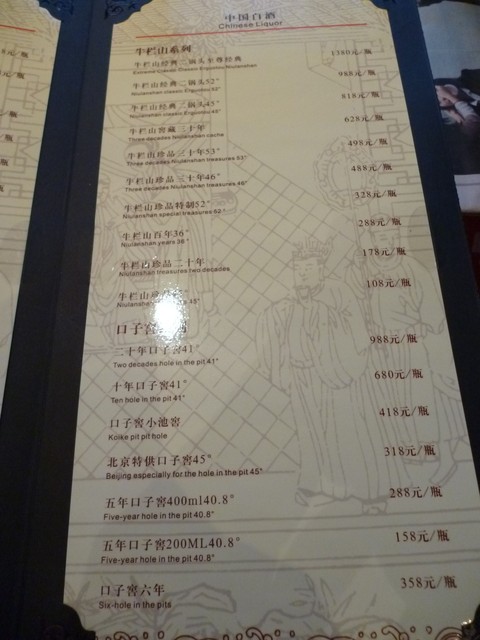 中国白酒
Chinese Liquor
牛栏山系列
牛栏山经典二锅头至尊经典 1380元/瓶
Extreme classic Classic Erguotou Niulanshan
牛栏山经典二锅头52° 988元/瓶
Niulanshan classic Erguotou 52°
牛栏山经典二锅头45° 818元/瓶
Niulanshan classic Erguotou 45°
牛栏山窖藏三十年 628元/瓶
Three decades Niulanshan cache
牛栏山珍品三十年53° 498元/瓶
Three decades Niulanshan treasures 53°
牛栏山珍品三十年46° 488元/瓶
Three decades Niulanshan treasures 46°
牛栏山珍品特制52° 328元/瓶
Niulanshan special treasures 52°
牛栏山百年36° 288元/瓶
Niulanshan years 36°
牛栏山珍品二十年 178元/瓶
Niulanshan treasures two decades
牛栏山 108元/瓶
35°
口子窖
二十年口子窖41° 988元/瓶
Two decades hole in the pit 41°
十年口子窖41° 680元/瓶
Ten hole in the pit 41°
口子窖小池窖 418元/瓶
Koike pit pit hole
北京特供口子窖45° 318元/瓶
Beijing especially for the hole in the pit 45°
五年口子窖400ml40.8° 288元/瓶
Five-year hole in the pit 40.8°
五年口子窖200ML40.8° 158元/瓶
Five-year hole in the pit 40.8°
口子窖六年 358元/瓶
Six-hole in the pits